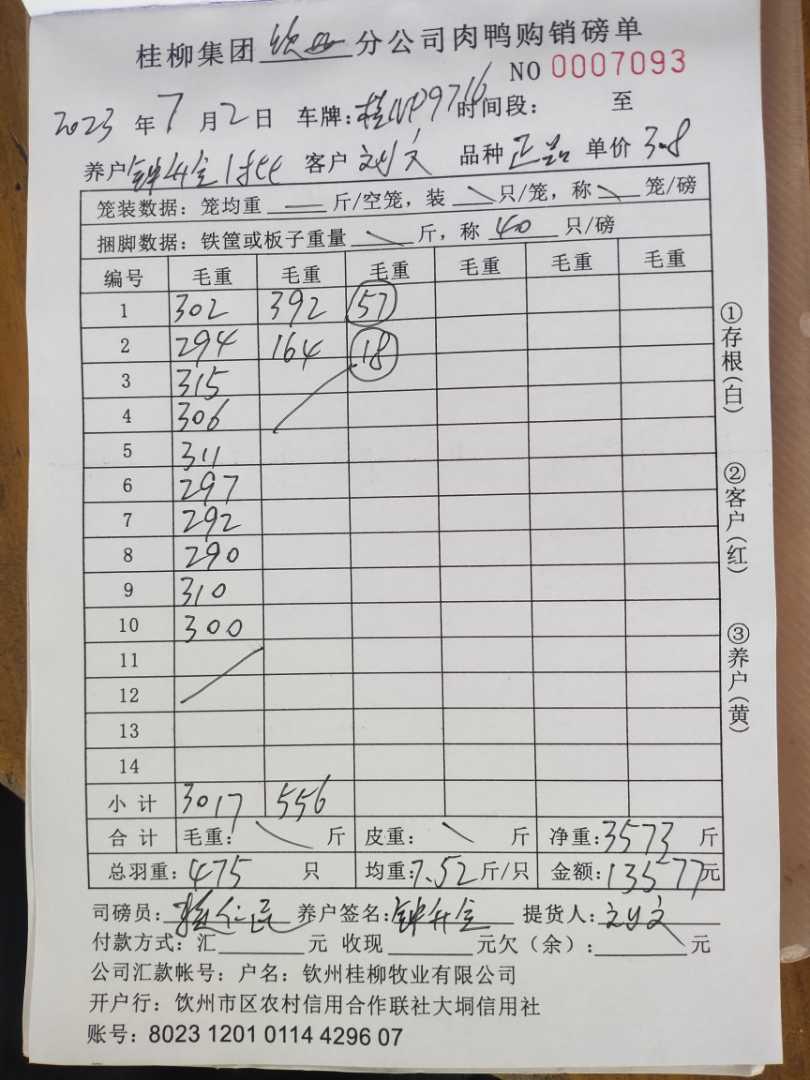 桂柳集团 钦州 分公司肉鸭购销磅单
NO 0007093
2023 年 7 月 2 日 车牌: 时间段: 至
养户 钟升全 客户 刘文 品种 正品 单价 3.8
笼装数据: 笼均重 — 斤/空笼, 装 \ 只/笼, 称 \ 笼/磅
捆脚数据: 铁筐或板子重量 \ 斤, 称 40 只/磅
编号 毛重 毛重 毛重 毛重 毛重 毛重
1 302 392 57
2 294 164 18
3 315
4 306
5 311
6 297
7 292
8 290
9 310
10 300
11
12
13
14
小计 3017 556
合计 毛重: \ 斤 皮重: \ 斤 净重: 3573 斤
总羽重: 475 只 均重: 7.52 斤/只 金额: 13577 元
司磅员: 养户签名: 钟升全 提货人: 刘文
付款方式: 汇 元 收现 元欠(余): 元
公司汇款帐号: 户名: 钦州桂柳牧业有限公司
开户行: 饮州市区农村信用合作联社大垌信用社
账号: 8023 1201 0114 4296 07
①存根(白)
②客户(红)
③养户(黄)